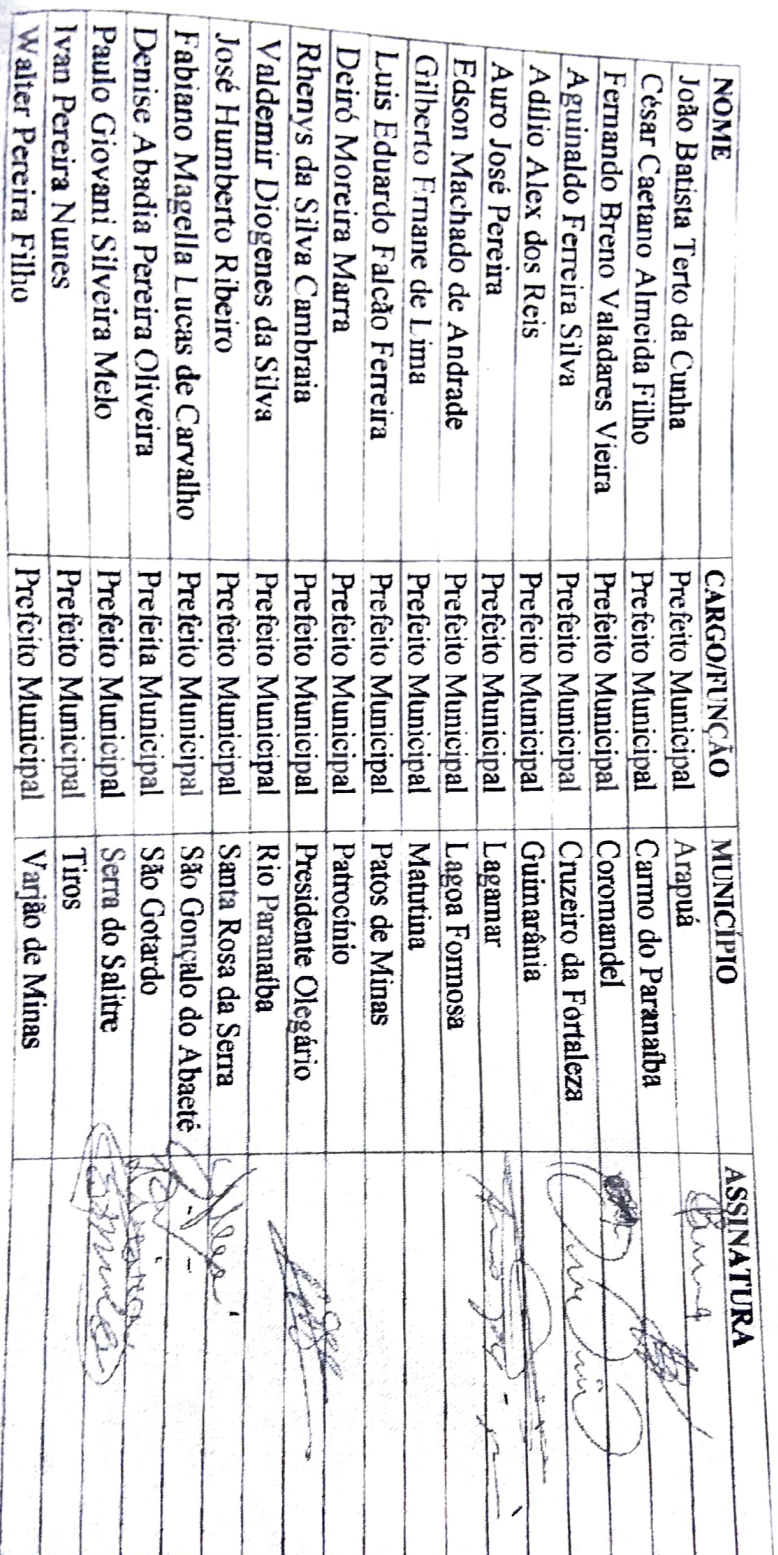 NOME CARGO/FUNÇÃO MUNICÍPIO ASSINATURA
João Batista Terto da Cunha Prefeito Municipal Arapuá
César Caetano Almeida Filho Prefeito Municipal Carmo do Paranaíba
Fernando Breno Valadares Vieira Prefeito Municipal Coromandel
Aguinaldo Ferreira Silva Prefeito Municipal Cruzeiro da Fortaleza
Adílio Alex dos Reis Prefeito Municipal Guimarânia
Auro José Pereira Prefeito Municipal Lagamar
Edson Machado de Andrade Prefeito Municipal Lagoa Formosa
Gilberto Ernane de Lima Prefeito Municipal Matutina
Luis Eduardo Falcão Ferreira Prefeito Municipal Patos de Minas
Deiró Moreira Marra Prefeito Municipal Patrocínio
Rhenys da Silva Cambraia Prefeito Municipal Presidente Olegário
Valdemir Diogenes da Silva Prefeito Municipal Rio Paranaíba
José Humberto Ribeiro Prefeito Municipal Santa Rosa da Serra
Fabiano Magella Lucas de Carvalho Prefeito Municipal São Gonçalo do Abaeté
Denise Abadia Pereira Oliveira Prefeita Municipal São Gotardo
Paulo Giovani Silveira Melo Prefeito Municipal Serra do Salitre
Ivan Pereira Nunes Prefeito Municipal Tiros
Walter Pereira Filho Prefeito Municipal Varjão de Minas